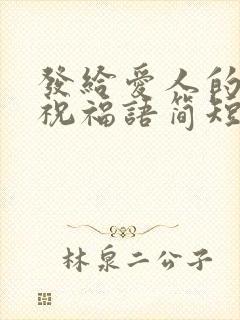 發給愛人的
祝福語簡短
林泉二公子